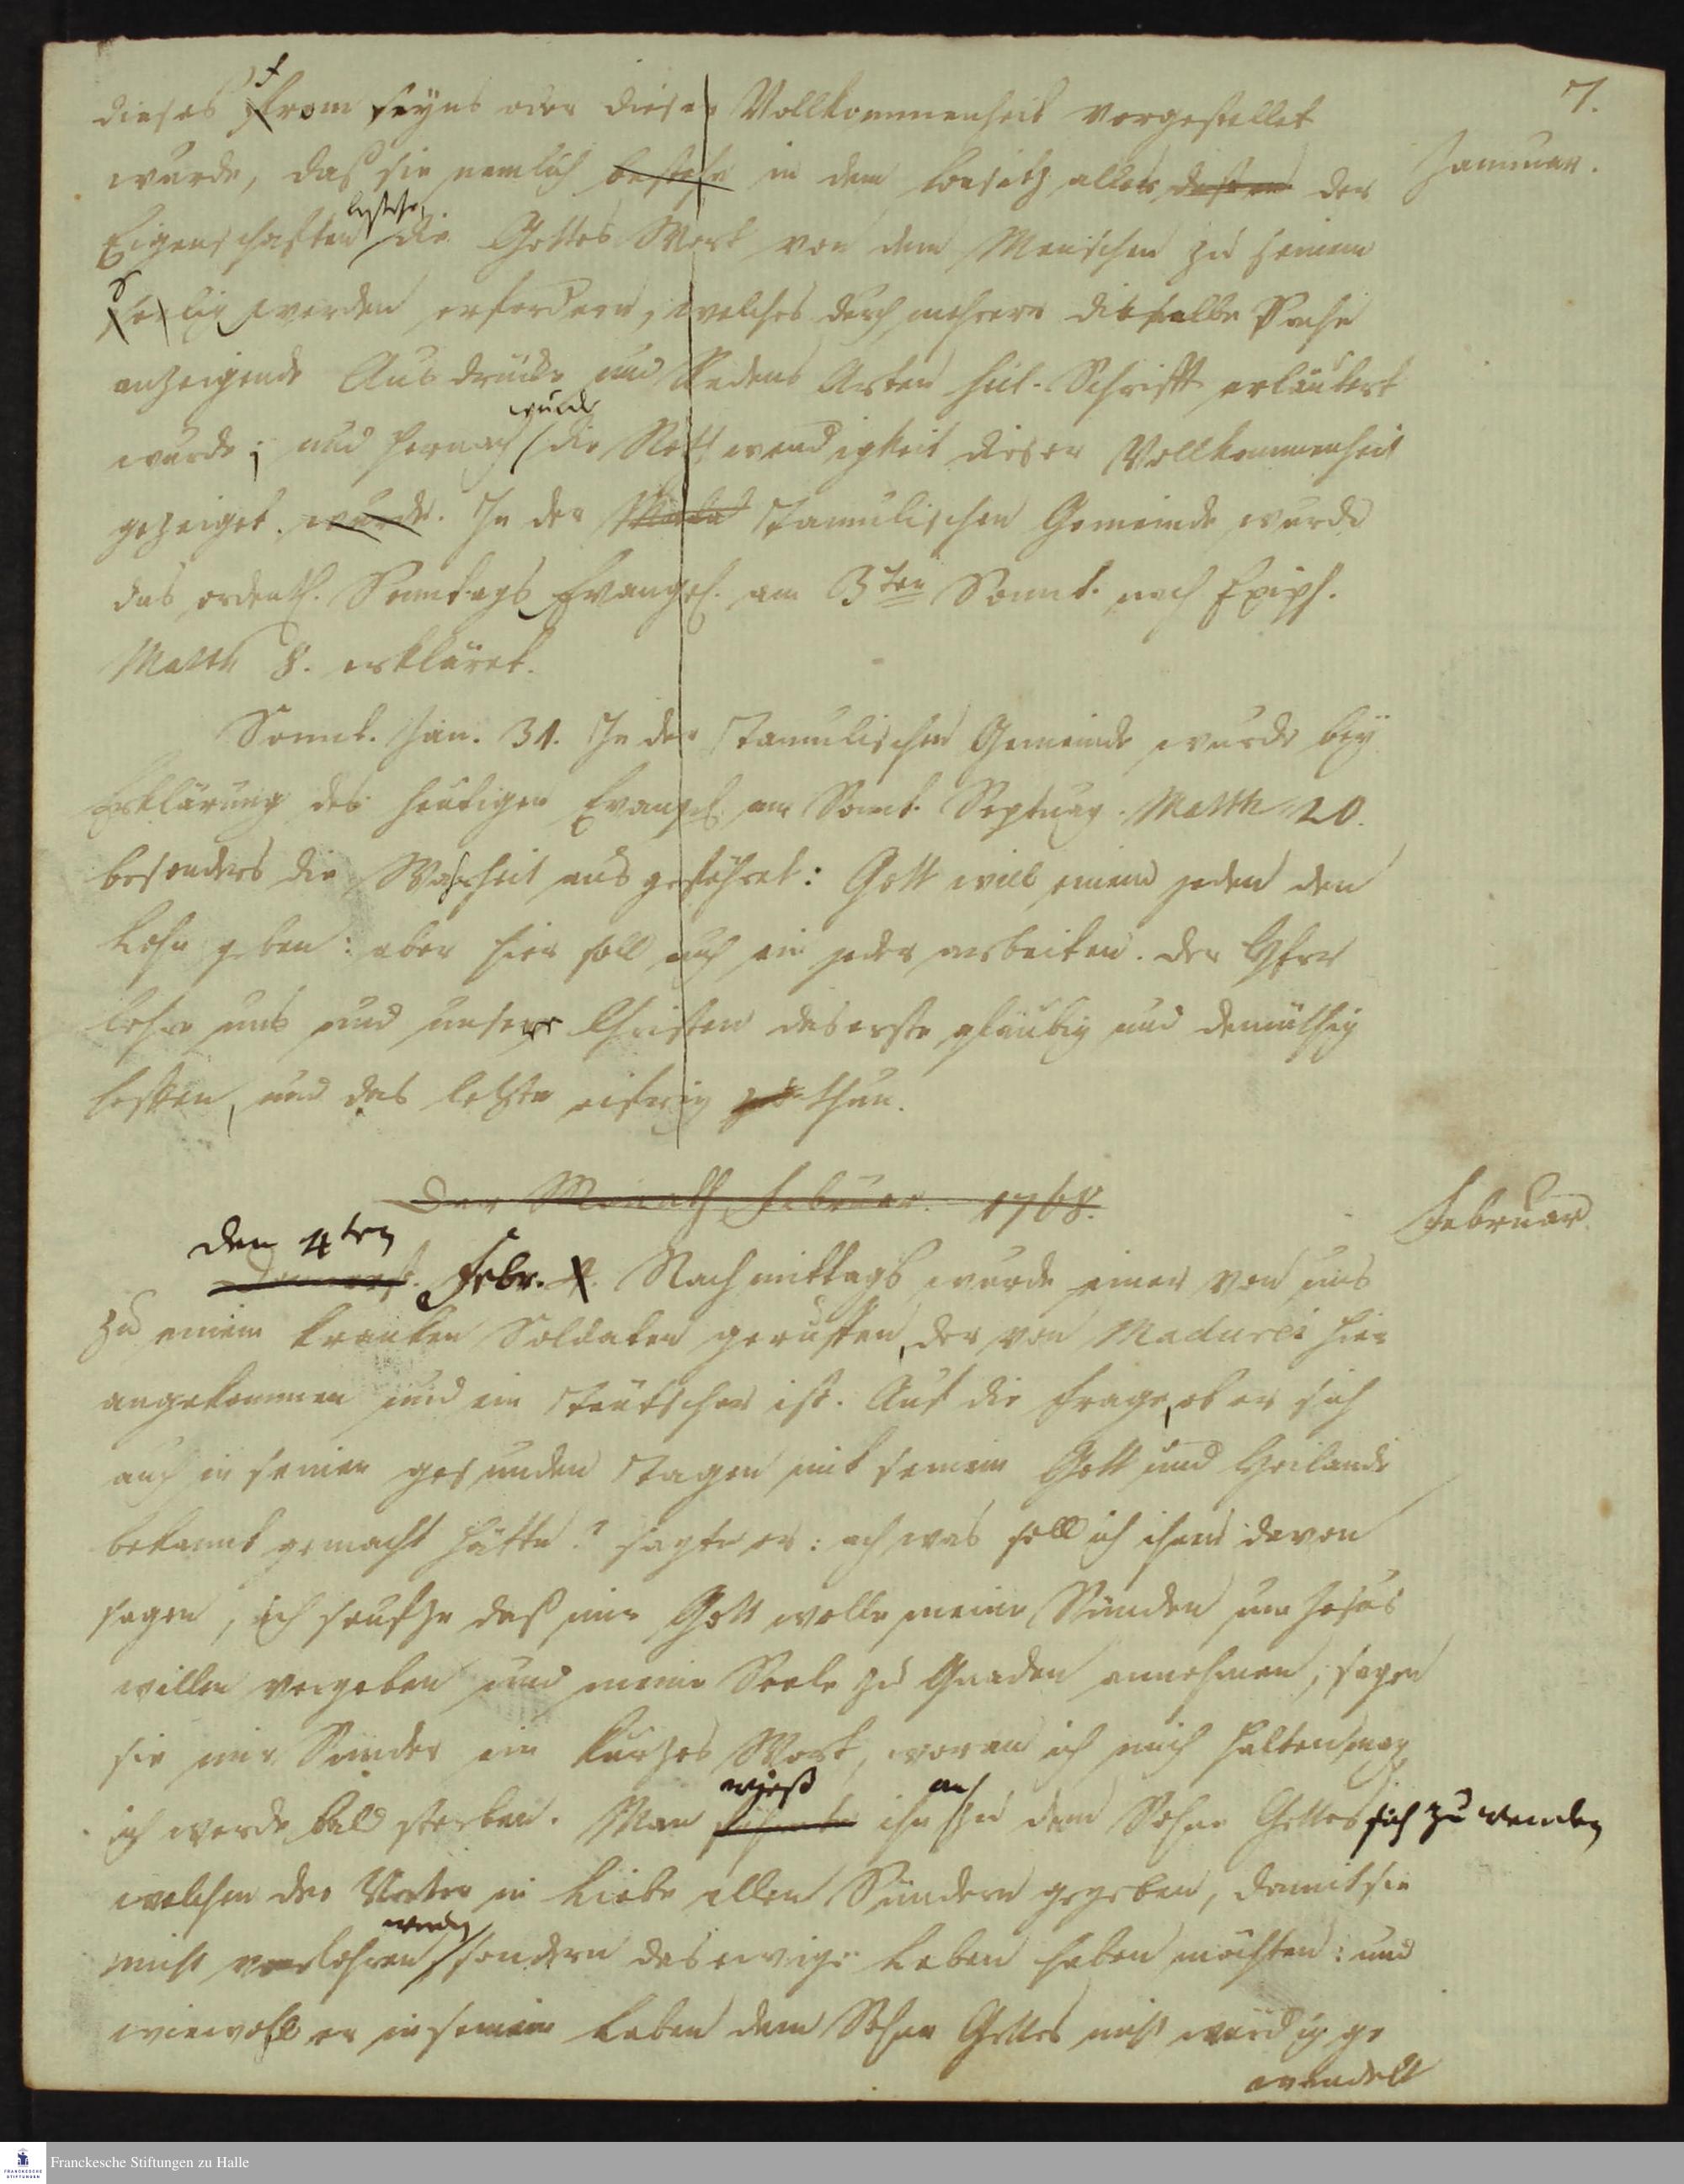 7.
Januar.
dieses from seyns oder dieser Vollkommenheit vorgestellet
wurde, daß sie nemlich bestehe in dem Besitz aller der
Eigenschaften bestehe, die Gottes Wort von dem Menschen zu seinem
selig werden erfordern, welches durch mehrere dieselbe Sache
anzeigende Ausdrücke und Redens Arten heil. Schrifft erläutert
wurde; und hernach wurde die Nothwendigkeit dieser Vollkommenheit
gezeiget. wurde. In der Tamulischen Gemeinde wurde
das ordentl. Sonntags Evangel. am 3ten Sonnt. nach Epiph.
Matth 8. erkläret.
Sonnt. Jan. 31. In der Tamulischen Gemeinde wurde bey
Erklärung des heutigen Evangel. am Sonnt. Septuag. Matth 20.
besonders die Wahrheit ausgeführet: Gott will einem jeden den
Lohn geben: aber hier soll auch ein jeder arbeiten. Der HErr
lehre uns und unsere Christen das erste gläubig und demüthig
hoffen, und das letzte eifrig zu thun.
Der Monath Februar. 1768.
Februar.
den 4ten
Donnerst. Febr. 4. Nachmittags wurde einer von uns
zu einem kranken Soldaten geruffen, der von Madurei hier
angekommen und ein Teutscher ist. Auf die Frage, ob er sich
auch in seinen gesunden Tagen mit seinem Gott und Heilande
bekannt gemacht hätte? sagte er: ach was soll ich ihnen davon
sagen, ich seufze daß mir Gott wolle meine Sünden um Jesus
willen vergeben und meine Seele zu Gnaden annehmen, sagen
sie mir Sünder ein kurzes Wort, woran ich mich halten mag,
ich werde bald sterben. Man wieß ihn an zu dem Sohne Gottes sich zu wenden
welchen der Vater in Liebe allen Sündern gegeben, damit sie
nicht verlohren werden, sondern das ewige Leben haben möchten: und
wiewohl er in seinem Leben dem Sohne Gottes nicht würdig ge
wandelt
Franckesche Stiftungen zu Halle